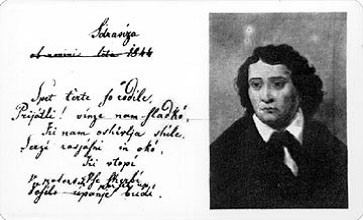 Sdraviza
leta 1844
Spet terte ſo rodile,
Prijatli! vinze nam ſladkó,
Ki nam oshivlja shile,
Serzé rasjaſni in okó,
Ki vtopi
Vſe ſkerbi
upanje budi.